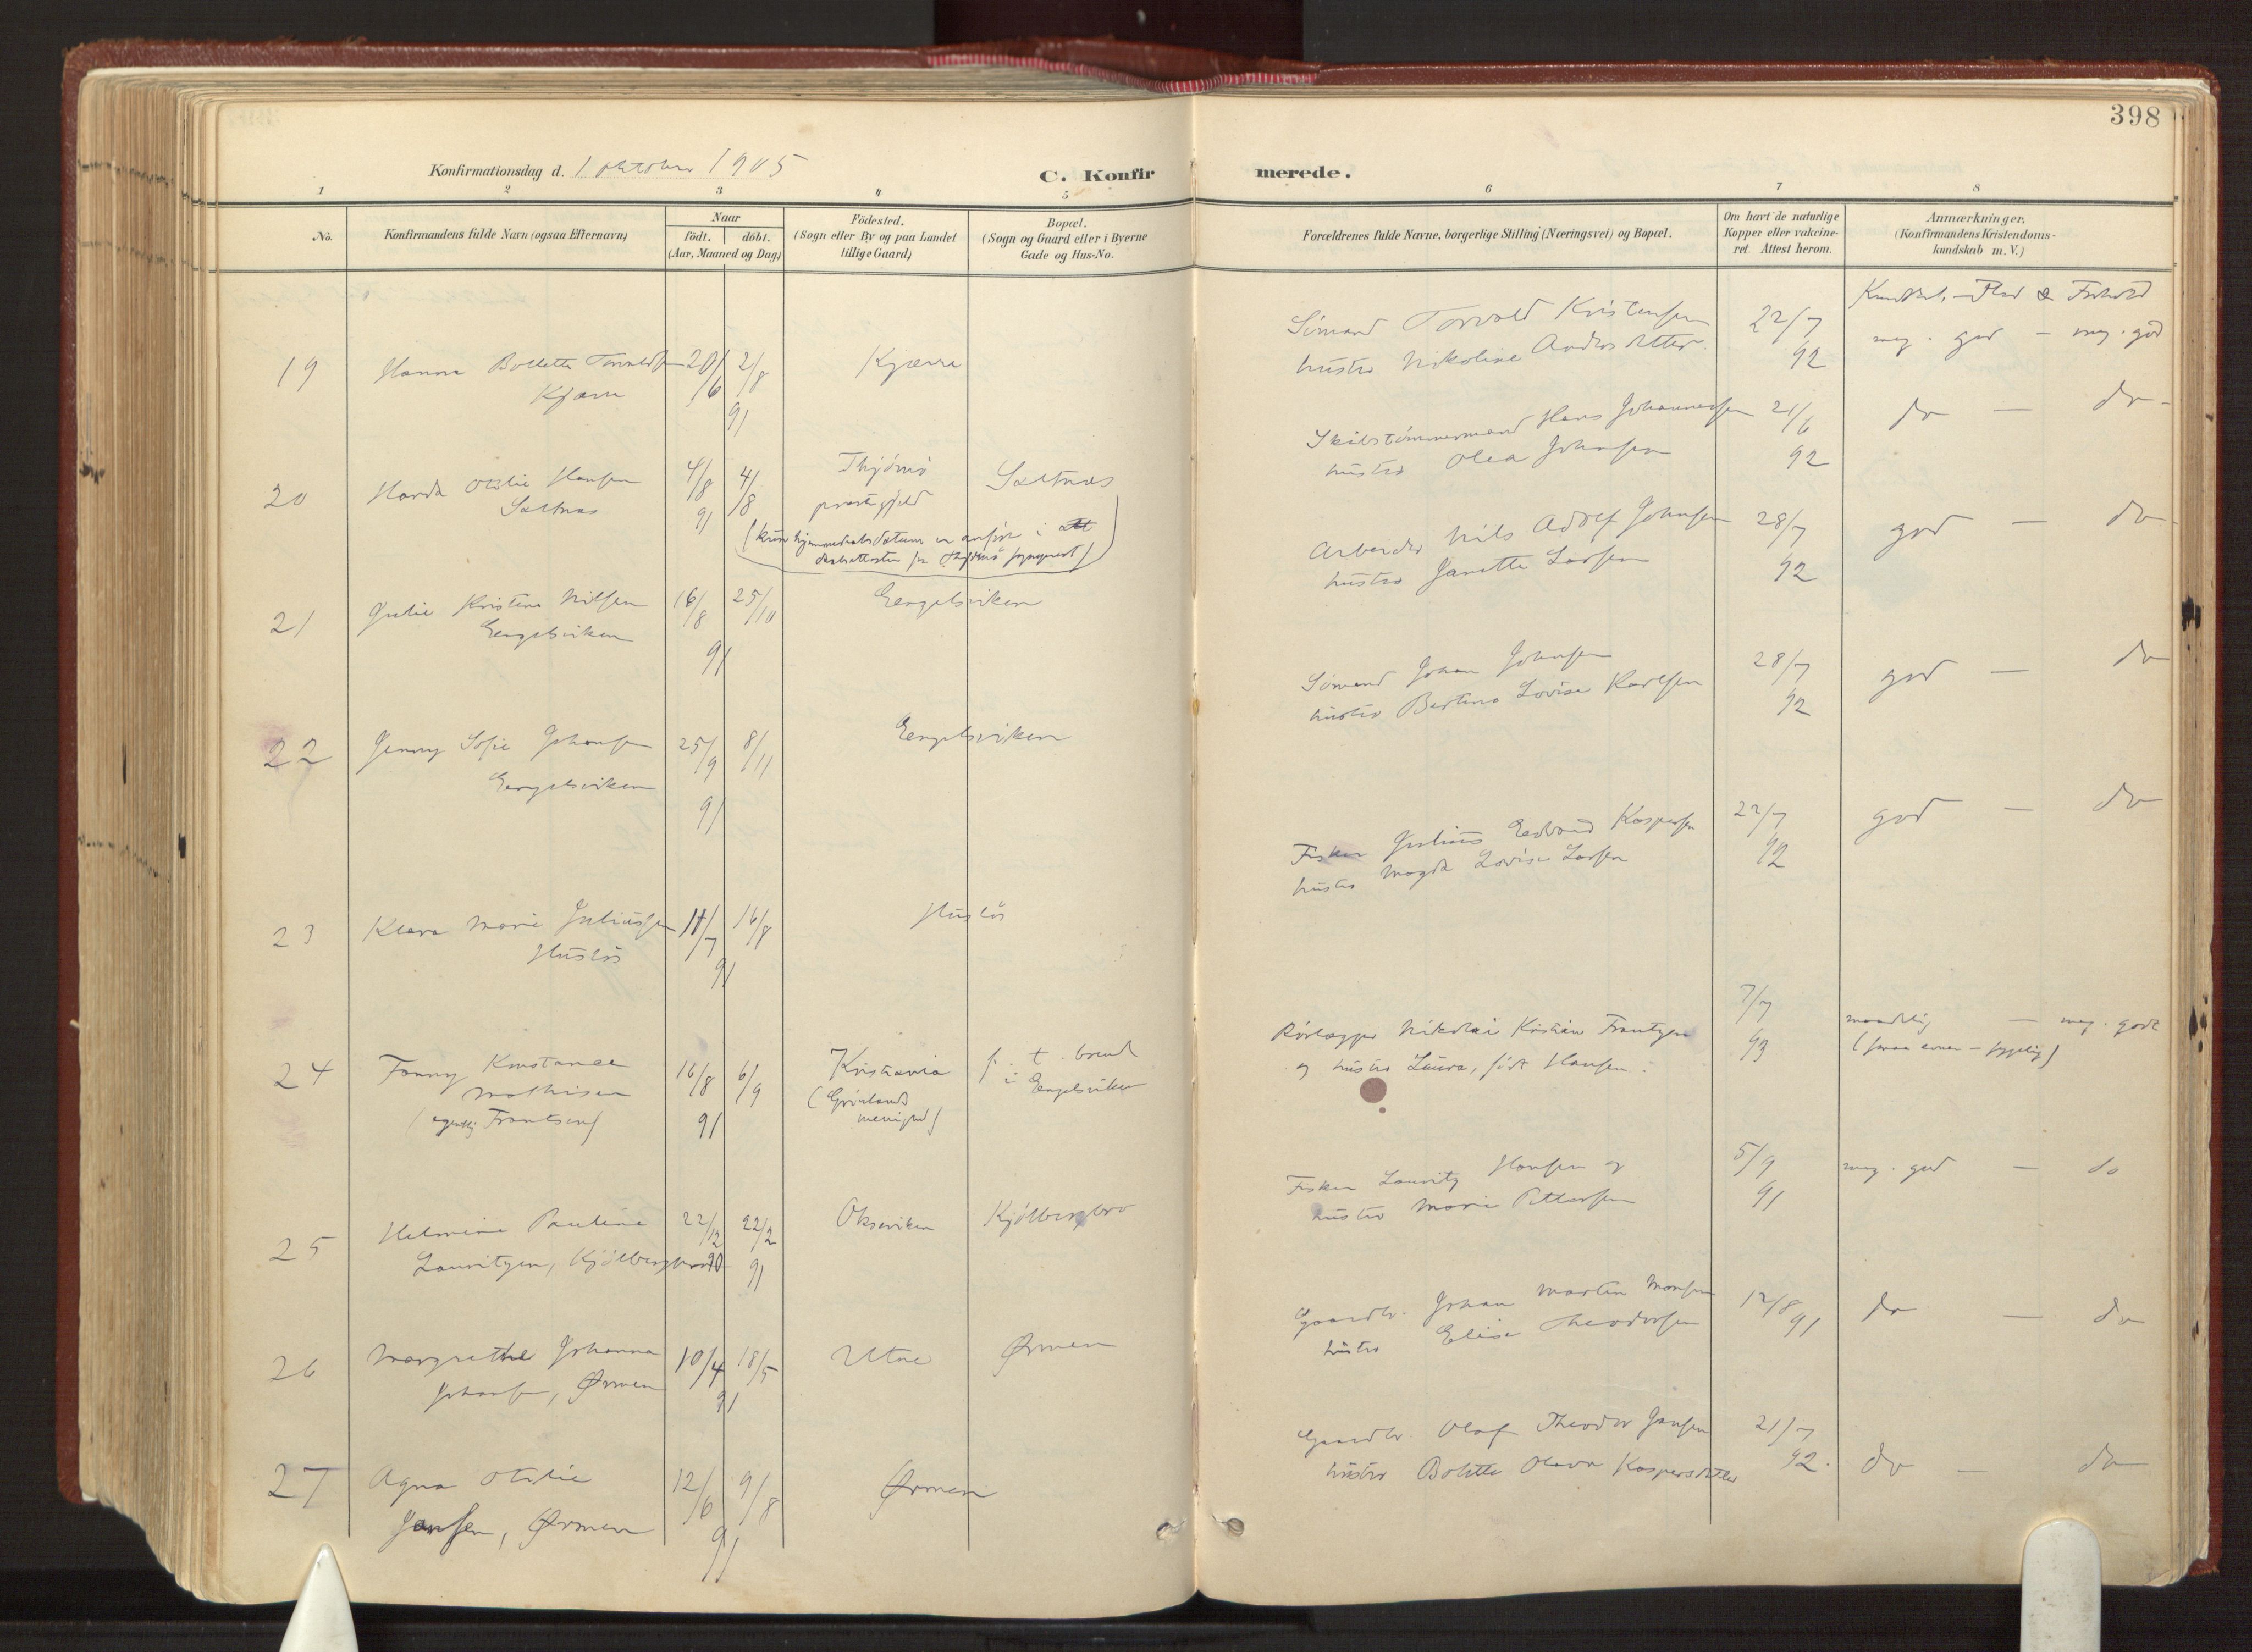 398
Konfirmationsdag d. 1 oktober 1905
C. Konfirmerede.
1 2 3 4 5 6 7 8
No.
Konfirmandens fulde Navn (ogsaa Efternavn)
Naar
födt. döbt.
(Aar, Maaned og Dag)
Födested.
(Sogn eller By og paa Landet
tillige Gaard)
Bopæl.
(Sogn og Gaard eller i Byerne
Gade og Hus-No.
Forældrenes fulde Navne, borgerlige Stilling (Næringsvei) og Bopæl.
Om havt de naturlige
Kopper eller vakcine-
ret. Attest herom.
Anmærkninger.
(Konfirmandens Kristendoms-
kundskab m. V.)
Kundsk. - Flid & Forhold
19 Hanna Bollette Torvaldsen 20/6 2/8 Kjærre
Kjærre 91
Sömand Torvald Kristensen 22/7 meg. god - meg. god
hustru Nikoline Andersdatter. 92
20 Harda Otilie Hansen 4/8 4/8 Thjömö Saltnæs
Saltnæs 91 præstegjeld
(kun hjemmedaabsdatum er anført i
daabsattesten fra Thjømø sogneprest)
Skibstömmermand Hans Johannesen 21/6 do - do
hustru Olea Johansen 92
21 Julie Kristine Nilsen 16/8 25/10 Engelsviken
Engelsviken 91
Arbeider Nils Adolf Johnsen 28/7 god - do
hustru Janette Larsen 92
22 Jenny Sofie Johansen 25/9 8/11 Engelsviken
Engelsviken 91
Sömand Johan Johnsen 28/7 god - do
hustru Bertine Lovise Karlsen 92
23 Klara Marie Juliussen 11/7 16/8 Huslös
Huslös 91
Fisker Julius Edvard Kaspersen 22/7 god - do
hustru Magda Lovise Larsen 92
24 Fanny Konstance 16/8 6/9 Kristiania f. t. boend
Mathisen (Grönlands i Engelsviken
(egentlig Frantsen) 91 menighed)
Rörlægger Nikolai Kristian Frantzen 7/7 maadelig - meg. godt
og hustru Laura, född Hansen. 93 (smaa evner - sygelig)
25 Helmine Pauline 22/12 22/2 Oksviken Kjölbergbro
Lauritzen, Kjölbergbro 90 91
Fisker Lauritz Hansen og 5/9 meg. god - do
hustru Marie Pettersen 91
26 Margrethe Johanna 10/4 18/5 Utne Ørmen
Johansen, Ørmen 91
Gaardbr. Johan Martin Monsen 12/8 do - do
hustru Elise Theodorsen 91
27 Agna Otilie 12/6 9/8 Ørmen
Jansen, Ørmen 91
Gaardbr. Olaf Theodor Jansen 21/7
hustru Bolette Olava Kaspersdatter 92. do - do